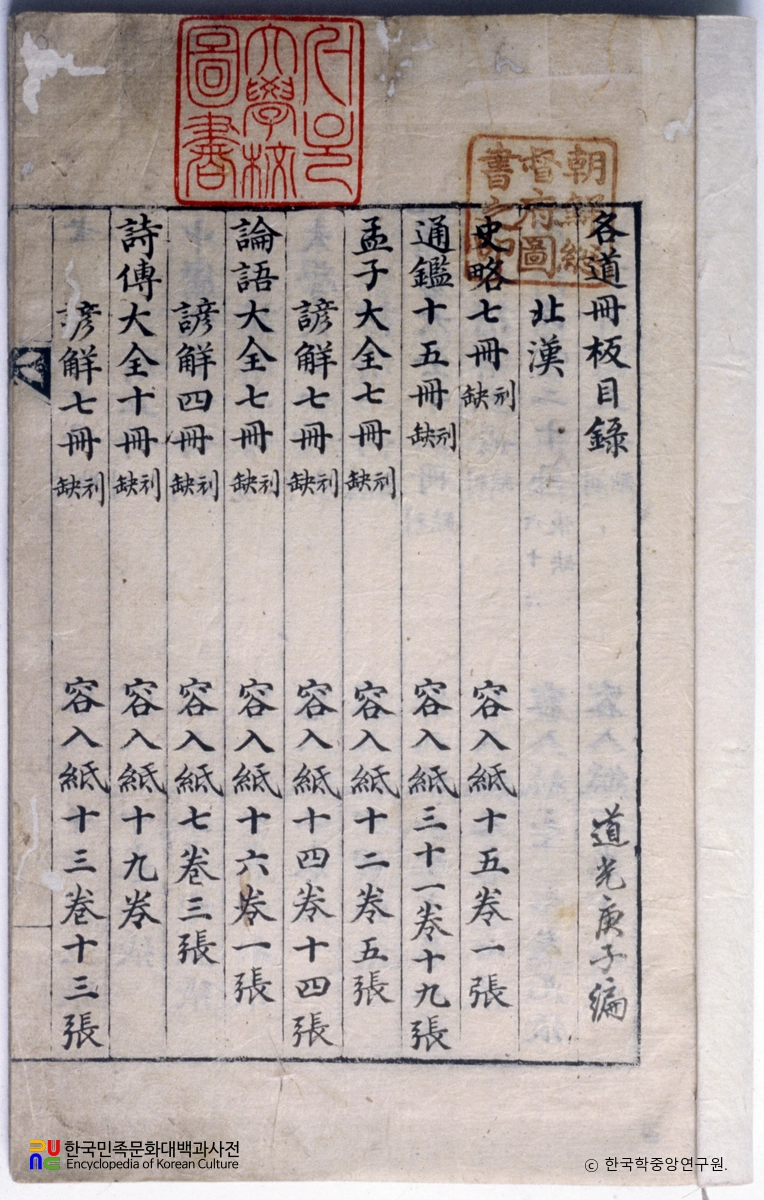 朝鮮總
督府圖
書之印
大學校
圖書
各道冊板目錄 道光庚子編
北漢
史略七冊刓缺 容入紙十五卷一張
通鑑十五冊刓缺 容入紙三十一卷十九張
孟子大全七冊刓缺 容入紙十二卷五張
諺解七冊刓缺 容入紙十四卷十四張
論語大全七冊刓缺 容入紙十六卷一張
諺解四冊刓缺 容入紙七卷三張
詩傳大全十冊刓缺 容入紙十九卷
諺解七冊刓缺 容入紙十三卷十三張
한국민족문화대백과사전
Encyclopedia of Korean Culture
© 한국학중앙연구원.